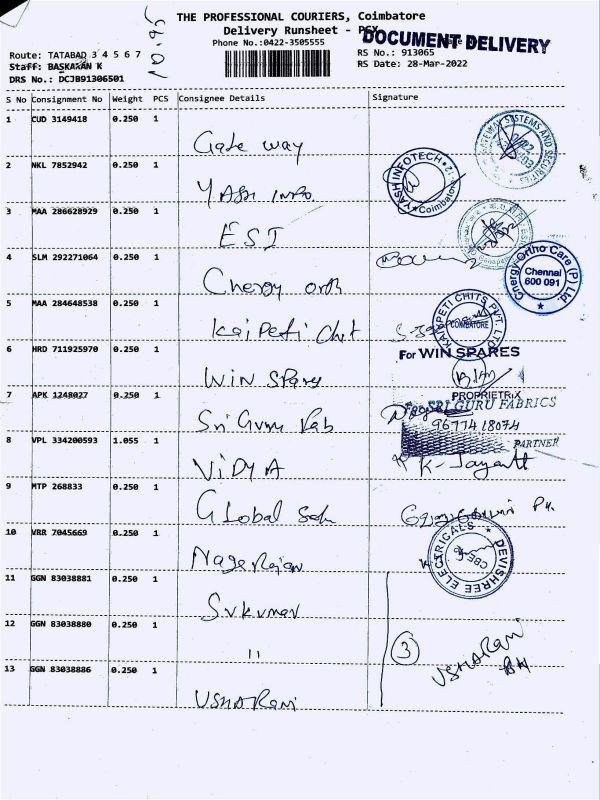 THE PROFESSIONAL COURIERS, Coimbatore
Delivery Runsheet - PCX
DOCUMENT DELIVERY
Phone No.:0422-3505555
Route: TATABAD 3 4 5 6 7
Staff: BASKARAN K
DRS No.: DCJB91306501
RS No.: 913065
RS Date: 28-Mar-2022
S No Consignment No Weight PCS Consignee Details Signature
1 CUD 3149418 0.250 1
Gate way
GATEWAY SYSTEMS AND SECURITIES
2 NKL 7852942 0.250 1
YASH INFO
YASH INFOTECH
Coimbatore
3 MAA 286628929 0.250 1
ESI
4 SLM 292271064 0.250 1
Energy orth
Energy Ortho Care (P) Ltd.
Chennai
600 091
5 MAA 284648538 0.250 1
Kaipeti Chit
KAIPETI CHITS PVT. LTD
COIMBATORE
6 HRD 711925970 0.250 1
For WIN SPARES
Win Spares
PROPRIETRIX
7 APK 1248027 0.250 1
SRI GURU FABRICS
Sri Guru Fab
9677418074
PARTNER
8 VPL 334200593 1.055 1
VIDYA
9 MTP 268833 0.250 1
Global
10 VRR 7045669 0.250 1
Nagarajan
DEVISHREE ELECTRICALS
CBE
11 GGN 83038881 0.250 1
Sukumar
12 GGN 83038880 0.250 1
"
3
USHARANI
13 GGN 83038886 0.250 1
USHARani